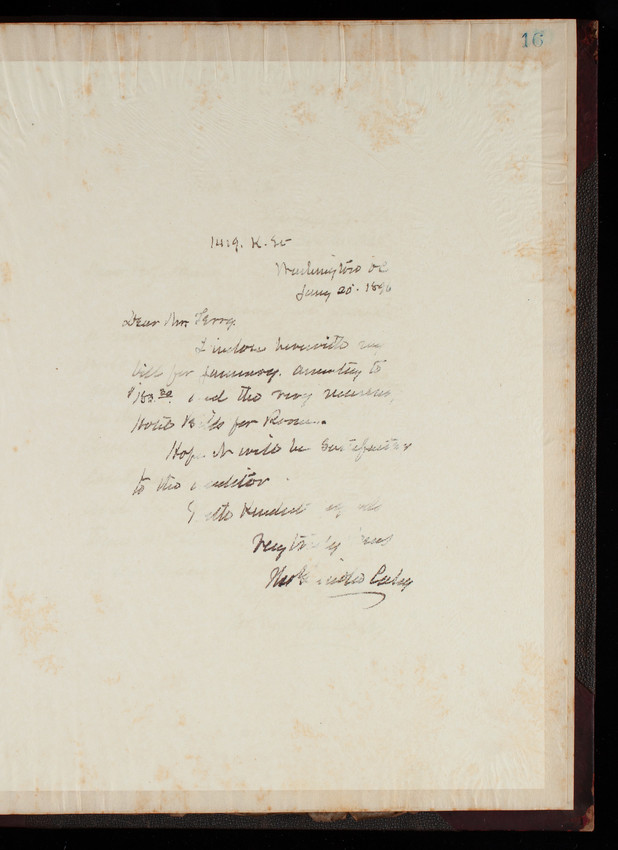 16
1419. K. St
Washington DC
Jany 25. 1896
Dear Mr.
I inclose herewith my
bill for January. amounting to
and the very necessary
Hotel for Room.
Hope it will be satisfactory
to the auditor.
With kindest regards
Very truly yours